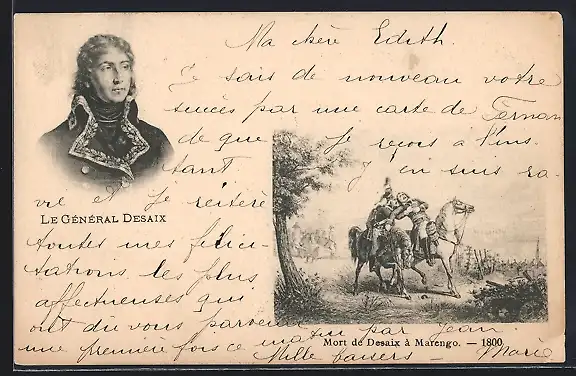 Ma chère Edith.
Je sais de nouveau votre
succès par une carte de Fernan
de que je reçois à l'ins.
tant j'en suis ra.
vie et je réitère
LE GÉNÉRAL DESAIX
toutes mes félici-
tations les plus
affectueuses qui
ont dû vous parvenir ce matin par Jean
Mort de Desaix à Marengo. — 1800.
une première fois
Mille baisers — Marie